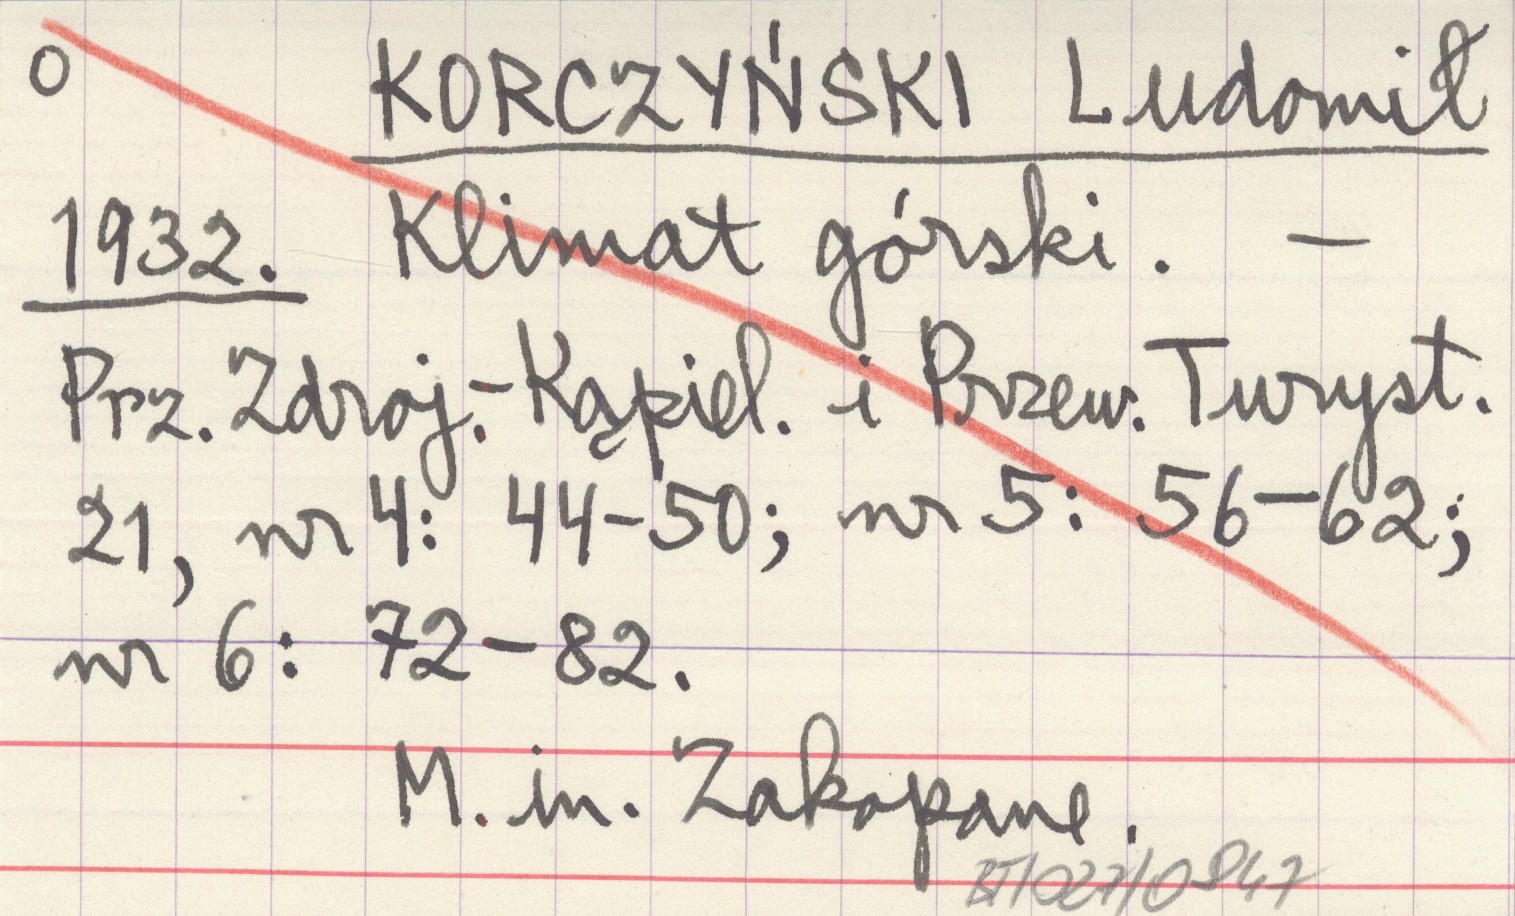 o KORCZYŃSKI Ludomił
1932. Klimat górski. –
Prz. Zdroj.-Kąpiel. i Przew. Turyst.
21, nr 4: 44–50; nr 5: 56–62;
nr 6: 72–82.
M. in. Zakopane.
BT/027/0847